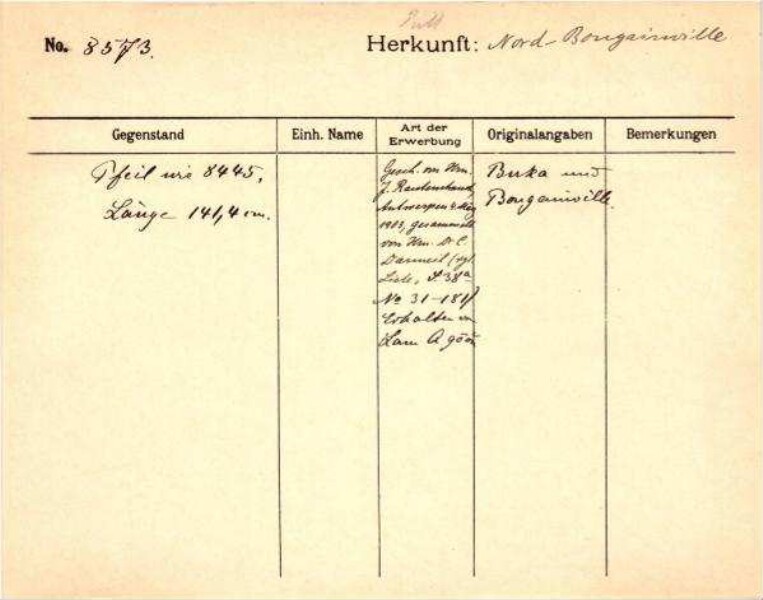 No. 8573.
Herkunft: Nord-Bougainville
Gegenstand
Einh. Name
Art der Erwerbung
Originalangaben
Bemerkungen
Pfeil wie 8445,
Länge 141,4 cm.
Gesch. von Hrn.
J.
Antwerpen
1903, gesammelt
von Hrn. Dr. C.
(vgl.
Liste, S. 38a
No 31-181)
Erhalten
Buka und
Bougainville.